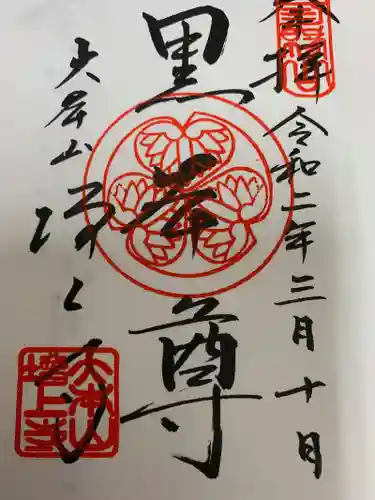 奉拝
令和二年三月十日
黒本尊
大本山
増上寺
大本山
増上寺